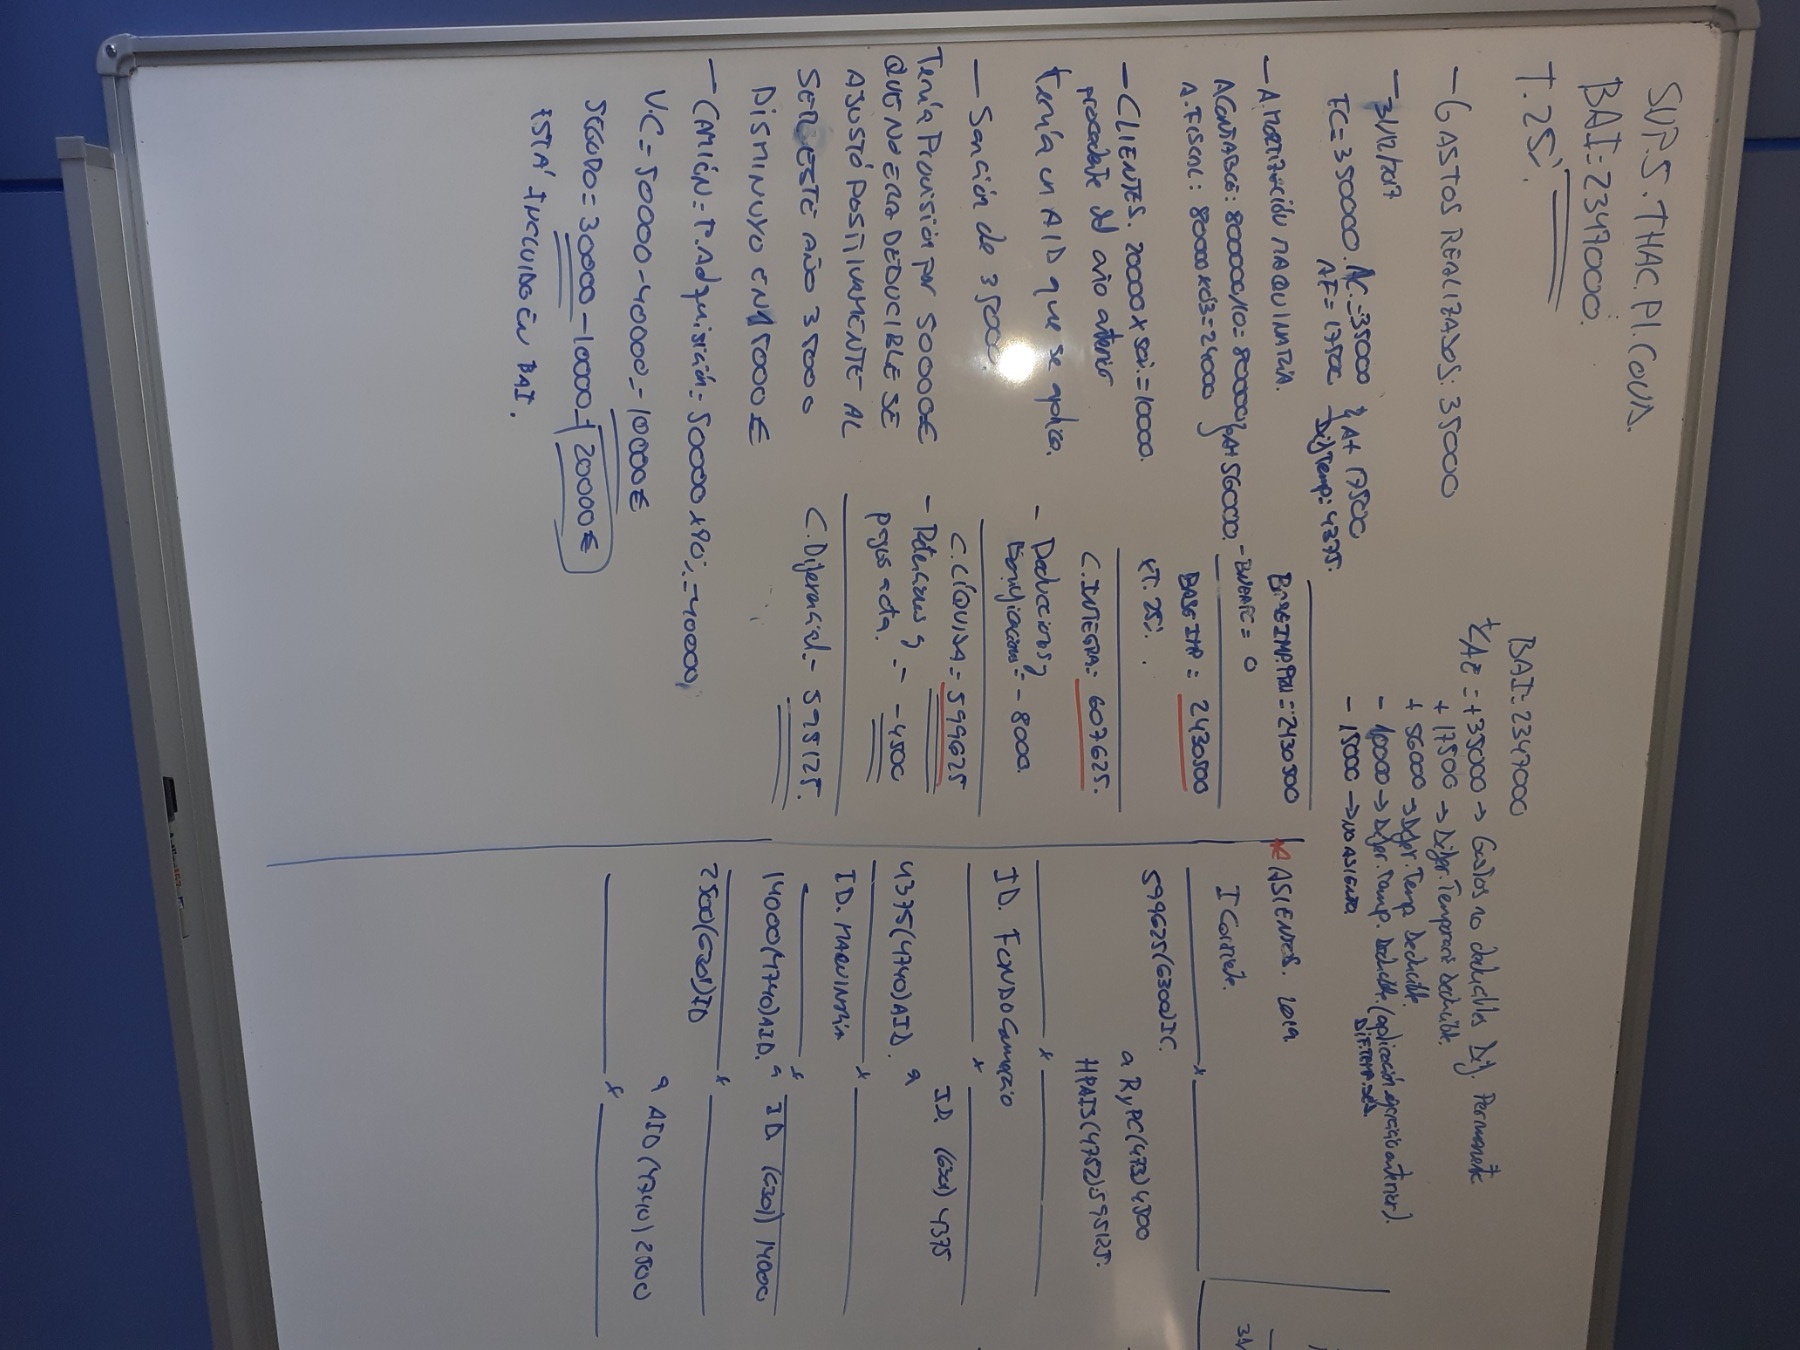 SUP. 5. THAC. PI. COVA.
BAI: 2347000.
T. 25%
- GASTOS REALIZADOS: 35000
- 31/12/2017
FC = 350000. AC = 35000 } A+ 17500
AF = 17500 Dif Temp: 4375.
- AMORTIZACIÓN MAQUINARIA.
A CONTABLE: 800000/10 = 80000 } A+ 56000.
A. FISCAL: 80000 x 0'3 = 24000
- CLIENTES. 20000 x 50% = 10000.
procedente del año anterior
tenía un AID que se aplica.
- Sanción de 35000.
Tenía Provisión por 50000€
QUE NO ERA DEDUCIBLE SE
AJUSTÓ POSITIVAMENTE AL
SER ESTE AÑO 35000
DISMINUYO EN 15000€
- CAMIÓN = P. Adquisición = 50000 x 80% = 40000,
V.C = 50000 - 40000 = 10000€
SEGURO = 30000 - 10000 = 20000€
ESTÁ INCLUIDO EN BAI.
BAI: 2347000
+/AE = +35000 → Gastos no deducibles Dif. Permanente
+ 17500 → Difer. Temporaria deducible.
+ 56000 → Difer. Temp. Deducible.
- 10000 → Difer. Temp. Deducible. (aplicación ejercicio anterior).
- 15000 → NO ASIENTO. DIF. TEMP. DED.
BASE IMP. PREVI = 2430500
- BINEATC = 0
BASE IMP = 2430500
xT. 25%.
C. INTEGRA = 607625.
- Deducciones y
Bonificaciones = - 8000.
C. LÍQUIDA = 599625
- Retenciones y
pagos a cta. = - 4500
C. Diferencial = 595125.
* ASIENTOS. 2019
I Corriente.
599625 (6300) IC.
a RyPC (473) 4500
HPAIS (4752) 595125.
ID. FONDO Comercio
4375 (4740) AID. a ID. (6301) 4375
ID. MAQUINARIA
14000 (4740) AID. a ID. (6301) 14000
2500 (6301) ID
a AID (4740) 2500